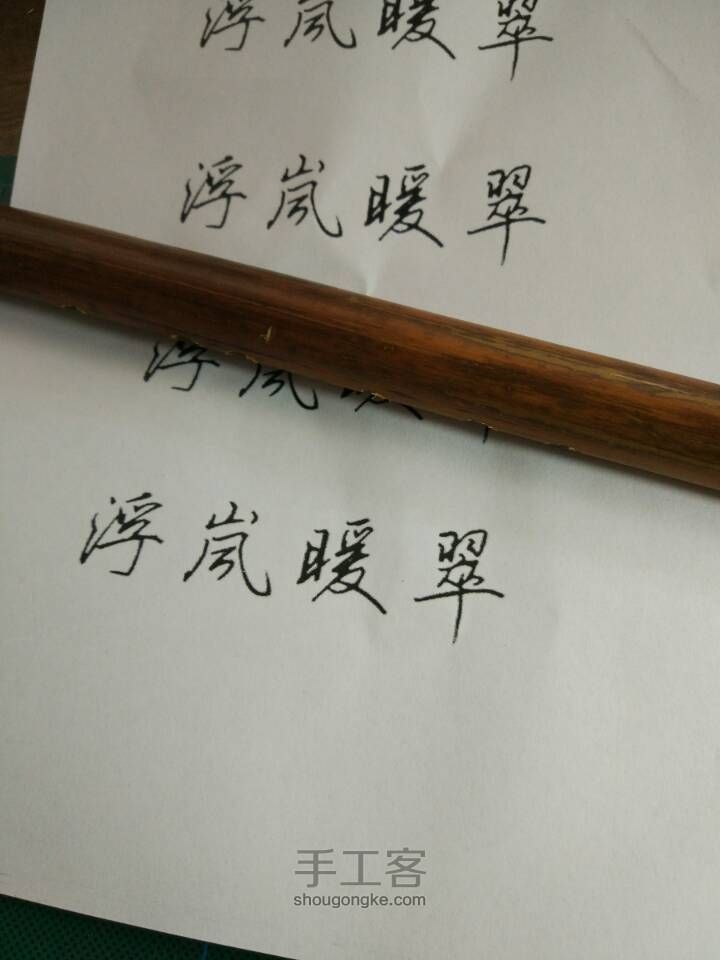 浮岚暖翠
浮岚暖翠
浮岚暖翠
浮岚暖翠
手工客
shougongke.com